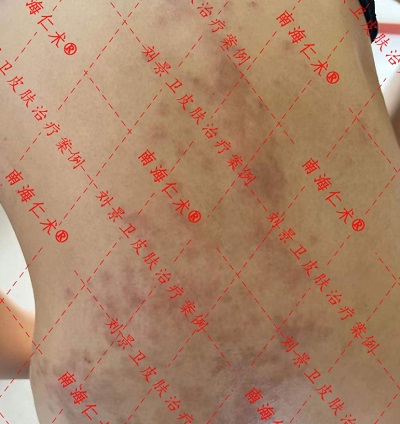 南海仁术®
刘景卫皮肤治疗案例
南海仁术®
刘景卫皮肤治疗案例
刘景卫皮肤治疗案例
南海仁术®
南海仁术®
南海仁术®
刘景卫皮肤治疗案例
刘景卫皮肤治疗案例
刘景卫皮肤治疗案例
刘景卫皮肤治疗案例
南海仁术®
南海仁术®